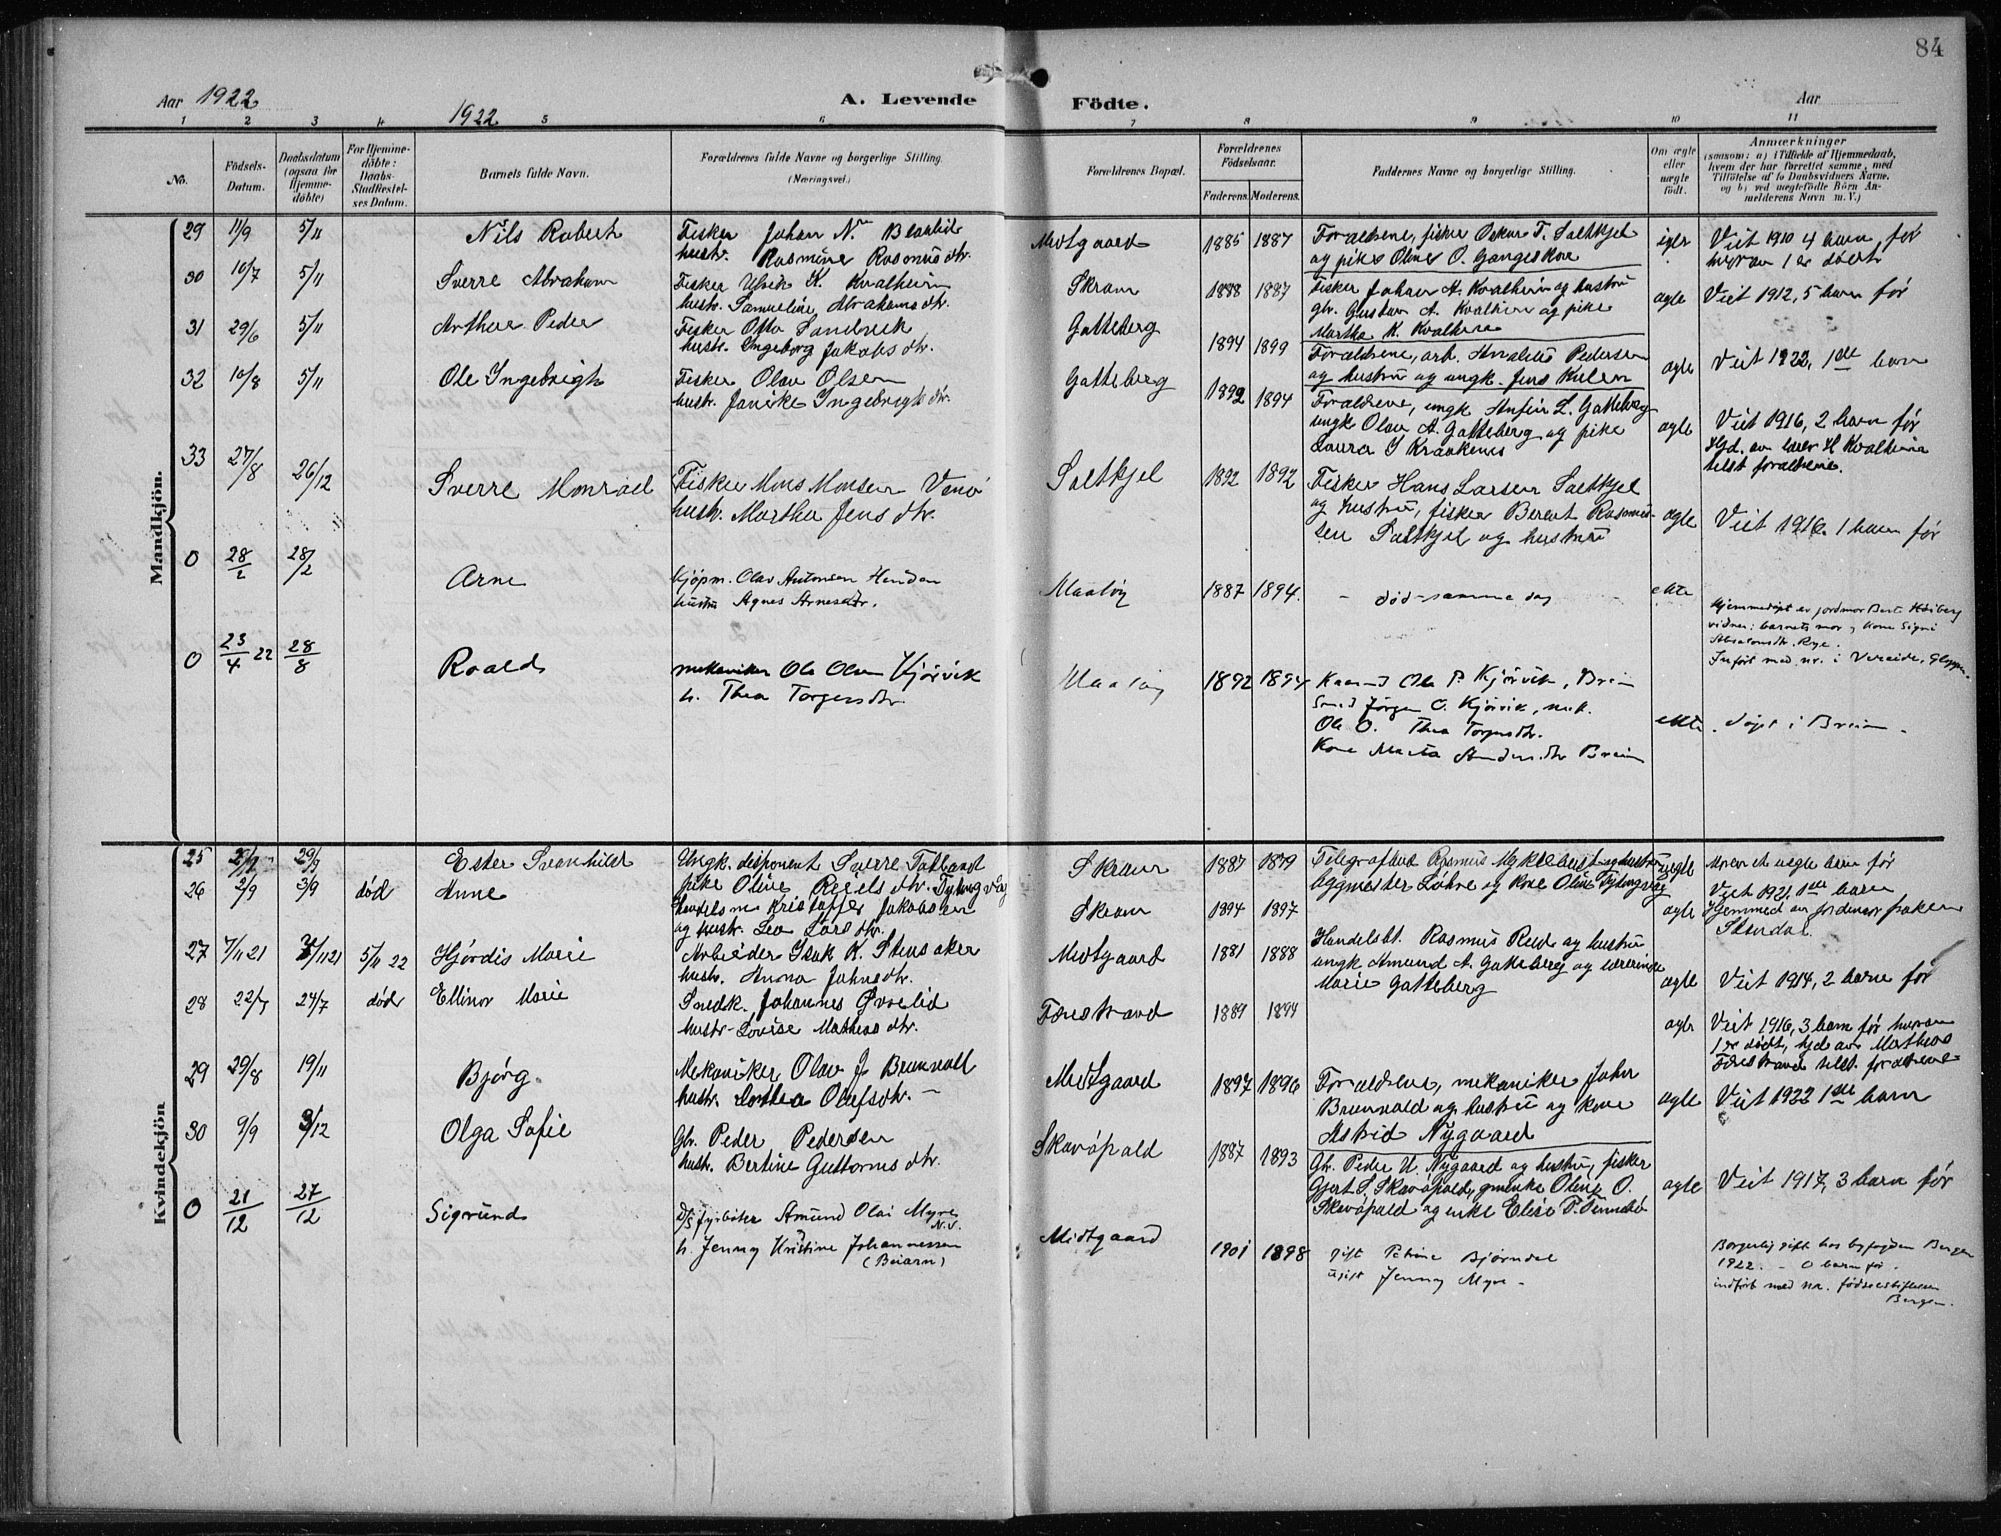 84
Aar 1922
1922
A. Levende
Födte.
Aar
1 2 3 4 5 6 7 8 9 10 11
No.
Födsels-Datum.
Daabsdatum (ogsaa for Hjemme-døbte)
For Hjemme-döbte: Daabs-Stadfæstel-ses Datum.
Barnets fulde Navn.
Forældrenes fulde Navne og borgerlige Stilling. (Næringsvei.)
Forældrenes Bopæl.
Forældrenes Födselsaar.
Faderens. Moderens.
Faddernes Navne og borgerlige Stilling.
Om ægte eller uægte födt.
Anmærkninger
(saasom: a) i Tilfælde af Hjemmedaab, hvem der har forrettet samme, med Tilföielse af to Daabsvidners Navne, og b) ved uægtefödte Börn An-melderens Navn m. V.)
Mandkjön.
29 11/9 5/11 Nils Robert
Fisker Johan N.
hustr. Rasmine Rasmusdtr.
Midtgaard 1885 1887
Forældrene, fisker Oskar T. Saltkjel
og pike Oline O.
Viet 1910 4 barn før
hvorav 1 er dødt
30 10/7 5/11 Sverre Abraham
Fisker Ulrik K. Kvalheim
hustr. Samueline Abrahamsdtr.
Skram 1888 1887
Fisker Johan A. Kvalheim og hustru
gbr. Gustav A. Kvalheim og pike
Martha K. Kvalheim
ægte Viet 1912, 5 barn før
31 29/6 5/11 Arthur Peder
Fisker Otto Sandvik
hustr. Ingeborg Jakobsdtr.
Gotteberg 1894 1899
Forældrene, arb. Pedersen
og hustru og ungk. Jens
ægte Viet 1922, 1ste barn
32 10/8 5/11 Ole Ingebrigt
Fisker Olav Olsen
hustr. Janike Ingebrigtsdtr.
Gotteberg 1892 1894
Forældrene, ungk. L. Gotteberg
ungk Olav A. Gotteberg og pike
Laura S Kraakenes
ægte Viet 1916, 2 barn før
Hjd. av H Kvalheim
tilst forældrene.
33 27/8 26/12 Sverre Monrad
Fisker Mons Monsen
hustr. Martha Jensdtr.
Saltkjel 1892 1892
Fisker Hans Larsen Saltkjel
og hustru, fisker Berent Rasmus-
sen Saltkjel og hustru
ægte Viet 1916. 1 barn før
0 28/2 28/2 Arne
Kjøpm. Olav Antonsen
hustru Agnes Arnesdtr.
Maaløy 1887 1894.
– død samme dag – ekte
Hjemmedøpt av jordmor
vidner: barnets mor og kone Signi
Absalonsdtr. Rye.
Indført med nr. i Vereide, Gloppen.
0 23/4 22 28/8 Roald
mekaniker Ole Olsen Kjørvik
h. Thea Torgersdtr.
Maaløy 1892 1894
Ole P. Kjørvik, Breim
Smed Jørgen O. Kjørvik, mek.
Ole O. Thea Torgersdtr.
Kone Marta Andersdtr Breim
ekte. døpt i Breim –
Kvindekjön
25 29/9 Ester Svanhild
Ungk. disponent Sverre
pike Oline
Skram 1887 1879
Telegrafbud Rasmus Myklebust og hustru
byggmester Løhre og kone Oline
uægte
26 2/9 3/9 død Anne
handelsm Kristoffer Jakobsen
og hustr. Lea Larsdtr.
Skram 1894 1897
Viet 1921, 1ste barn
ægte Hjemmed av jordmor frøken
Stendal.
27 7/11 21 /11 21 5/11 22 Hjørdis Marie
Arbeider Isak K. Stensaker
hustr. Anna Johnsdtr.
Midtgaard 1881 1888
Handelsbt. Rasmus Rud og hustru
ungk Amund A. Gotteberg og lærerinde
Marie Gotteberg
ægte Viet 1914, 2 barn før
28 22/7 24/7 død Ellinor Marie
Snedk. Johannes
hustr. Lovise Mathiasdtr.
Førestrand 1889 1894
ægte Viet 1916, 3 barn før hvorav
1 er dødt, hjd av Mathias
Førestrand tilst. forældrene
29 29/8 19/11 Bjørg.
Mekaniker Olav J. Brunvoll
hustr. Dorthea Olafsdtr. –
Midtgaard 1897 1896
Forældrene, mekaniker John
Brunvold og hustru og kone
Astrid Nygaard
ægte Viet 1922 1ste barn
30 9/9 3/12 Olga Sofie
Gbr. Peder Pedersen
hustr. Bertine Guttormsdtr.
Skavøpold 1887 1893
Gbr. Peder U. Nygaard og hustru, fisker
Gjert S. Skavøpold, gmenke Oline O.
Skavøpold og enke Elise P.
ægte Viet 1917, 3 barn før
0 21/12 27/12 Sigrund
D/S fyrbøter Amund Olai Myre
N.S.
h. Jenny Kristine Johannessen
(Beiarn)
Midtgaard 1901 1898
gift Petrine Bjørndal
ugift Jenny Myre –
Borgerlig gift hos byfogden Bergen
1922. – 0 barn før.
indført med nr. fødselsstiftelsen
Bergen.